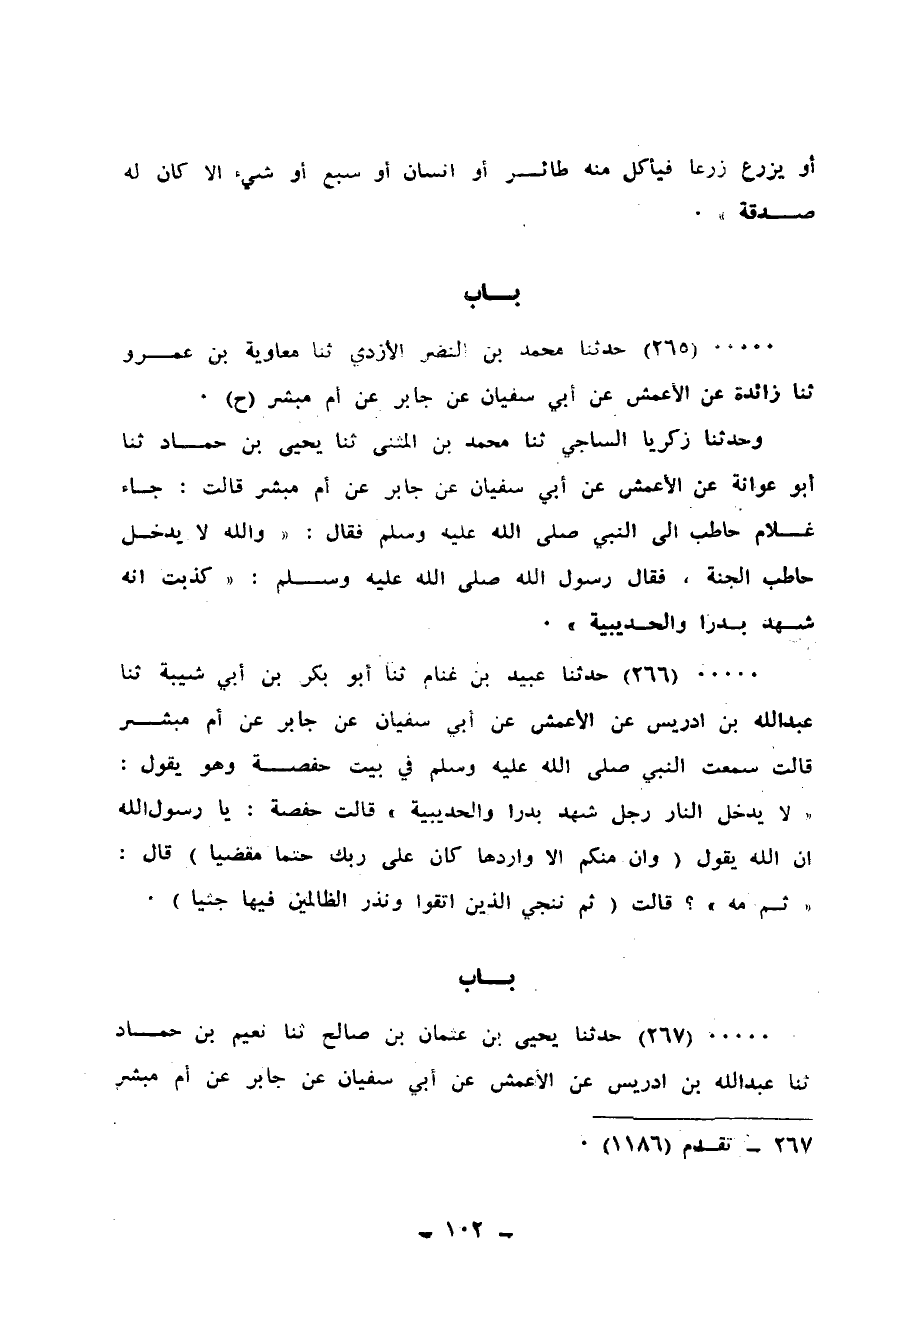 أو يزرع زرعا فيأكل منه طائـــر أو انسان أو سبع أو شيء الا كان له
صـــدقة » ٠
بـــاب
٠٠٠٠٠ (٢٦٥) حدثنا محمد بن النضر الأزدي ثنا معاوية بن عمـــرو
ثنا زائدة عن الأعمش عن أبي سفيان عن جابر عن أم مبشر (ح) ٠
وحدثنا زكريا الساجي ثنا محمد بن المثنى ثنا يحيى بن حمـــاد ثنا
أبو عوانة عن الأعمش عن أبي سفيان عن جابر عن أم مبشر قالت : جـاء
غـــلام حاطب الى النبي صلى الله عليه وسلم فقال : « والله لا يدخـل
حاطب الجنة ، فقال رسول الله صلى الله عليه وســـلم : « كذبت انه
شـــهد بـدرا والحـديبية » ٠
٠٠٠٠٠ (٢٦٦) حدثنا عبيد بن غنام ثنا أبو بكر بن أبي شيبة ثنا
عبدالله بن ادريس عن الأعمش عن أبي سفيان عن جابر عن أم مبشـــر
قالت سمعت النبي صلى الله عليه وسلم في بيت حفصـــة وهو يقول :
« لا يدخل النار رجل شهد بدرا والحديبية » قالت حفصة : يا رسول‌الله
ان الله يقول ( وان منكم الا واردها كان على ربك حتما مقضيا ) قال :
« ثـم مه » ؟ قالت ( ثم ننجي الذين اتقوا ونذر الظالمين فيها جثيا ) ٠
بـــاب
٠٠٠٠٠ (٢٦٧) حدثنا يحيى بن عثمان بن صالح ثنا نعيم بن حمـــاد
ثنا عبدالله بن ادريس عن الأعمش عن أبي سفيان عن جابر عن أم مبشر
٢٦٧ ـ تقـدم (١١٨٦) ٠
ـ ١٠٢ ـ